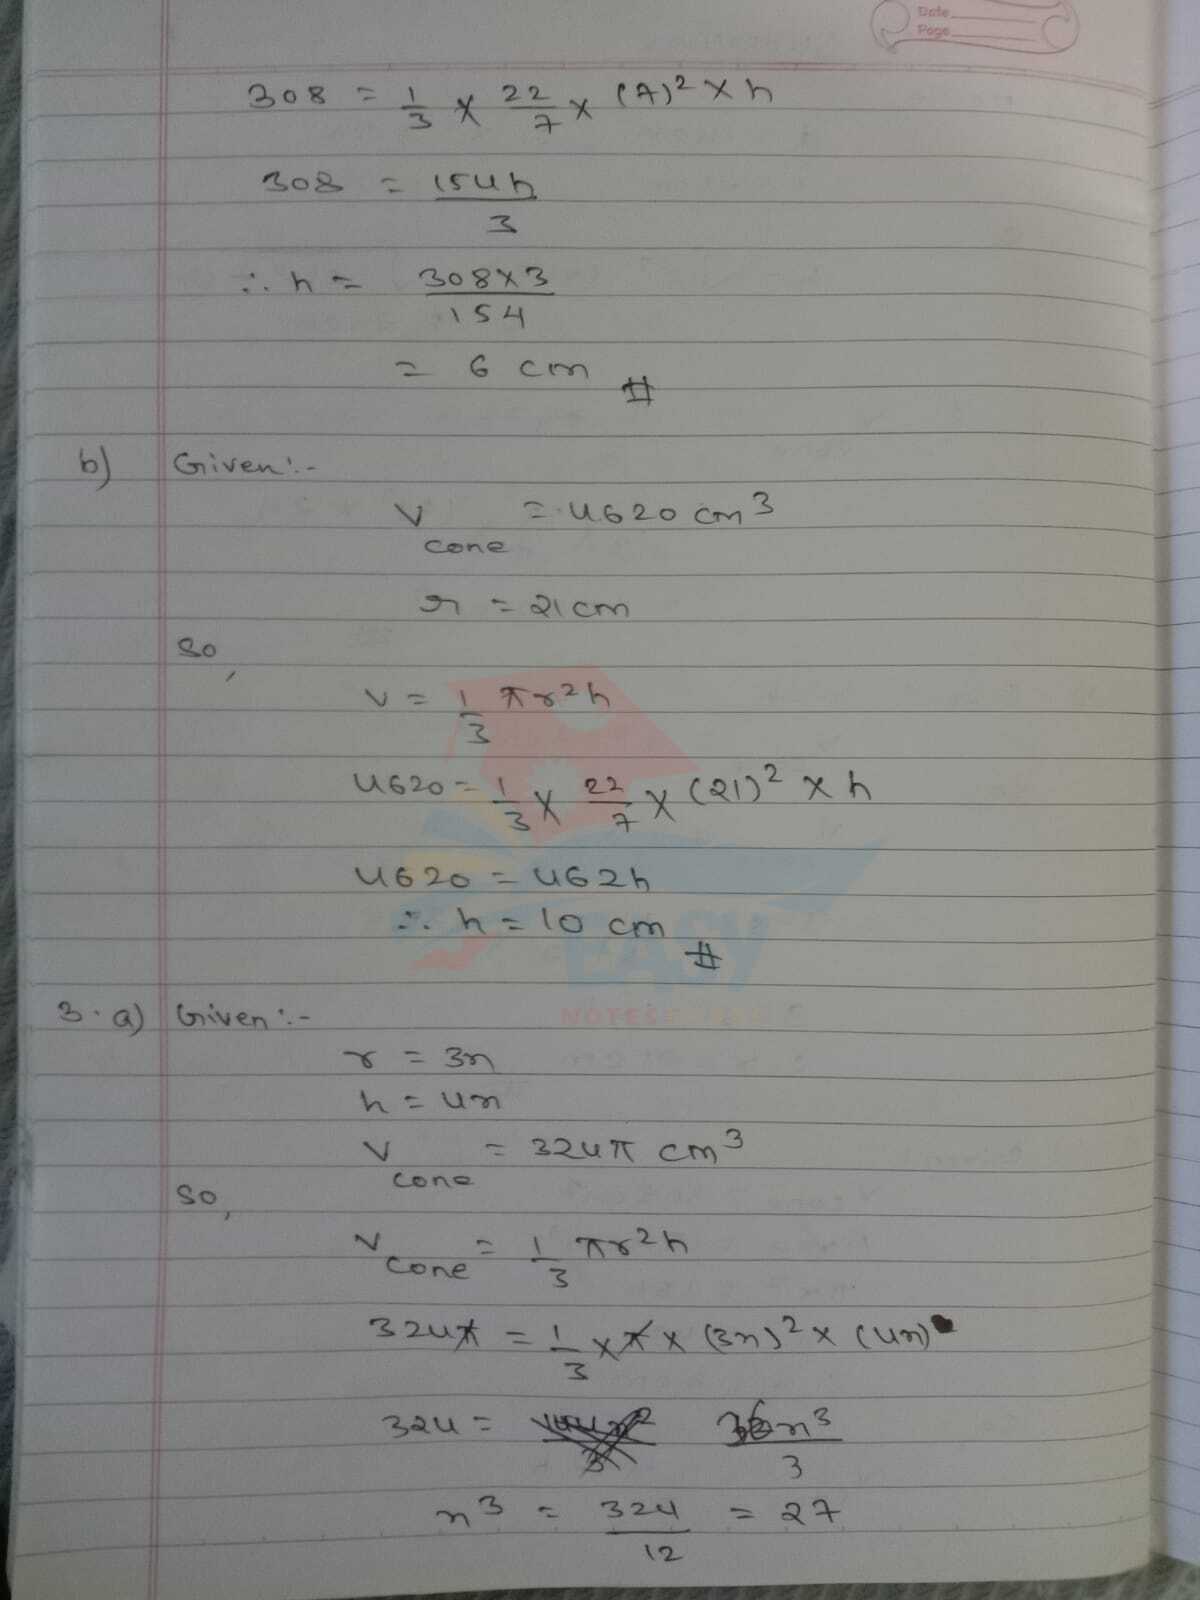 Date
Page
308 = 1/3 × 22/7 × (7)² × h
308 = 154h/3
∴ h = 308×3/154
= 6 cm #
b) Given:-
V cone = 4620 cm³
r = 21 cm
So,
V = 1/3 πr²h
4620 = 1/3 × 22/7 × (21)² × h
4620 = 462h
∴ h = 10 cm #
EASY
3. a) Given:-
r = 3n
h = 4n
V cone = 324π cm³
So,
V cone = 1/3 πr²h
324π = 1/3 × π × (3n)² × (4n)
324 = 36n³/3
n³ = 324/12 = 27